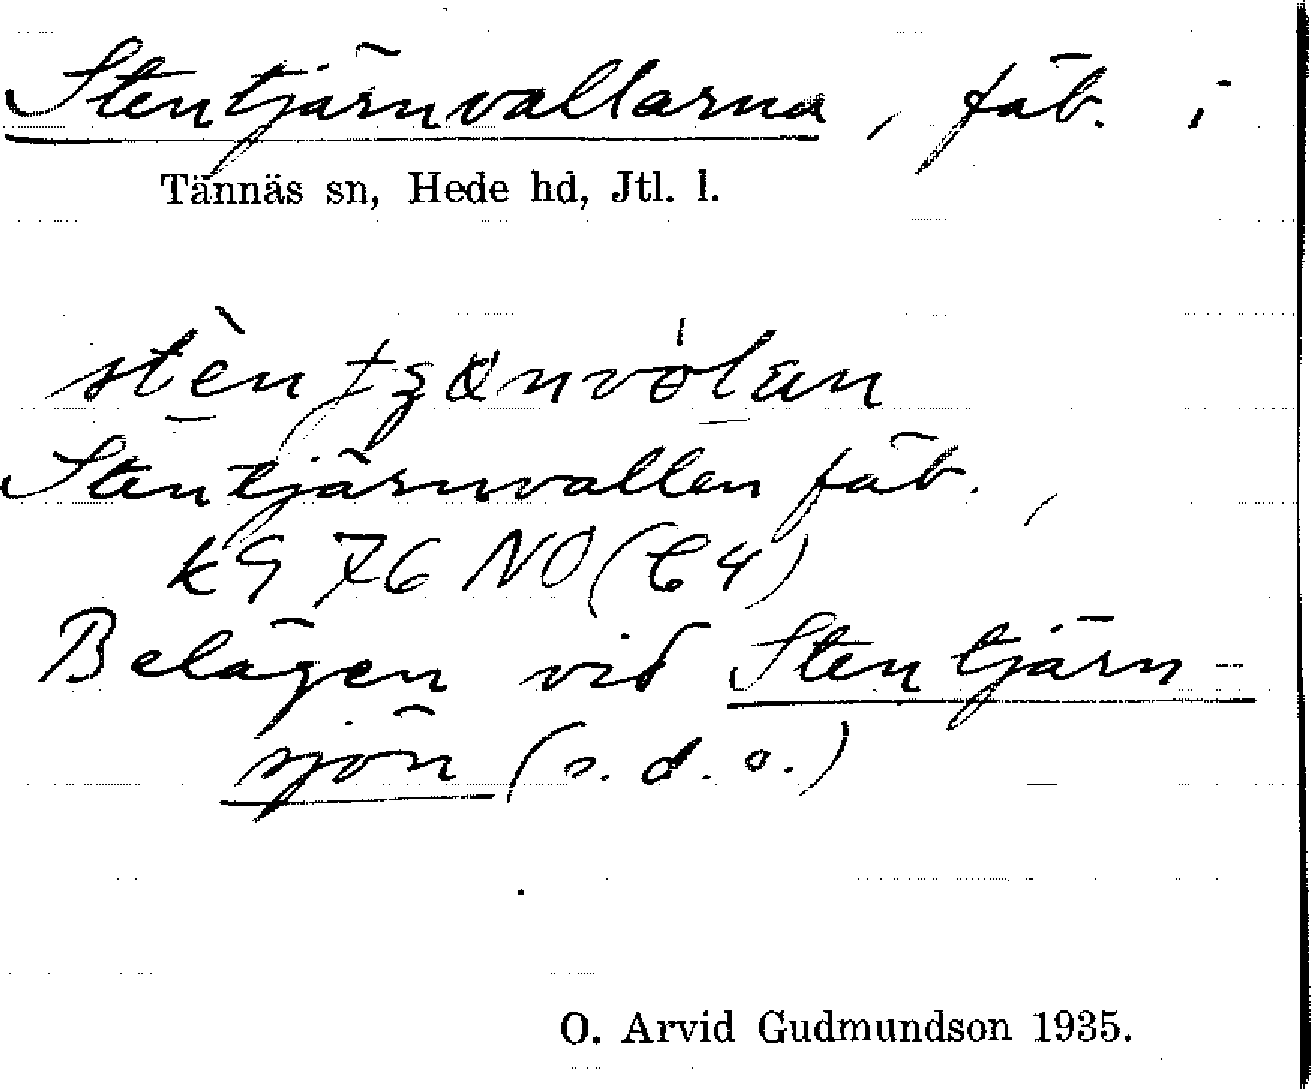 Stentjärnvallarna, fäb. i
Tännäs sn, Hede hd, Jtl. l.
Stentjärnvallen fäb.,
k 9 76 NO (C4)
Belägen vid Stentjärn-
sjön (s. d. o.)
O. Arvid Gudmundson 1935.